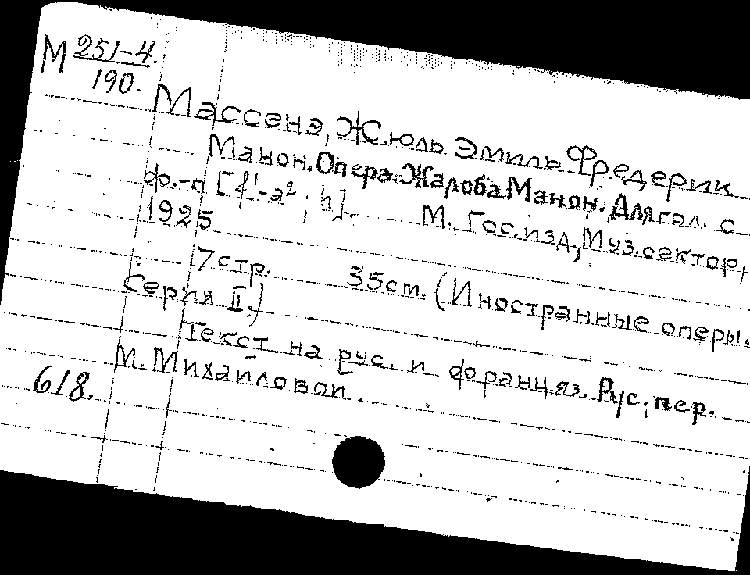 М 251-4
190.
Массенэ, Жюль Эмиль Фредерик
Манон. Опера. Жалоба Манон. Для гол. с
ф.-п [f'-a²; h]. М. Гос.изд, Муз.сектор,
1925
7 стр. 35 cm. (Иностранные оперы.
Серия II.)
Текст на рус. и француз. Рус. пер.
М. Михайловой.
618.